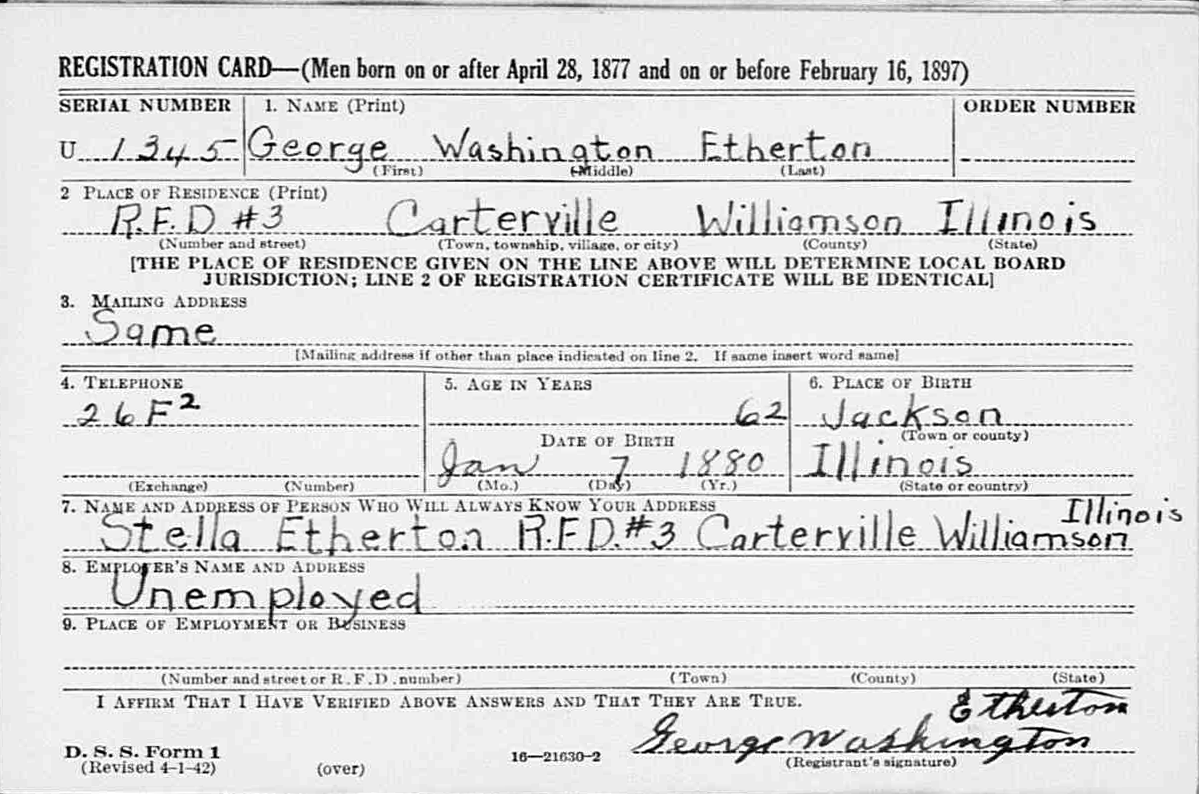 REGISTRATION CARD—(Men born on or after April 28, 1877 and on or before February 16, 1897)
SERIAL NUMBER 1. NAME (Print) ORDER NUMBER
U 1345 George Washington Etherton
(First) (Middle) (Last)
2 PLACE OF RESIDENCE (Print)
R.F.D #3 Carterville Williamson Illinois
(Number and street) (Town, township, village, or city) (County) (State)
[THE PLACE OF RESIDENCE GIVEN ON THE LINE ABOVE WILL DETERMINE LOCAL BOARD
JURISDICTION; LINE 2 OF REGISTRATION CERTIFICATE WILL BE IDENTICAL]
3. MAILING ADDRESS
Same
[Mailing address if other than place indicated on line 2. If same insert word same]
4. TELEPHONE 5. AGE IN YEARS 6. PLACE OF BIRTH
26F2 62 Jackson
DATE OF BIRTH (Town or county)
Jan 7 1880 Illinois
(Exchange) (Number) (Mo.) (Day) (Yr.) (State or country)
7. NAME AND ADDRESS OF PERSON WHO WILL ALWAYS KNOW YOUR ADDRESS Illinois
Stella Etherton R.F.D.#3 Carterville Williamson
8. EMPLOYER'S NAME AND ADDRESS
Unemployed
9. PLACE OF EMPLOYMENT OR BUSINESS
(Number and street or R. F. D. number) (Town) (County) (State)
I AFFIRM THAT I HAVE VERIFIED ABOVE ANSWERS AND THAT THEY ARE TRUE.
Etherton
George Washington
D. S. S. Form 1
(Revised 4-1-42) (over) 16—21630-2 (Registrant's signature)